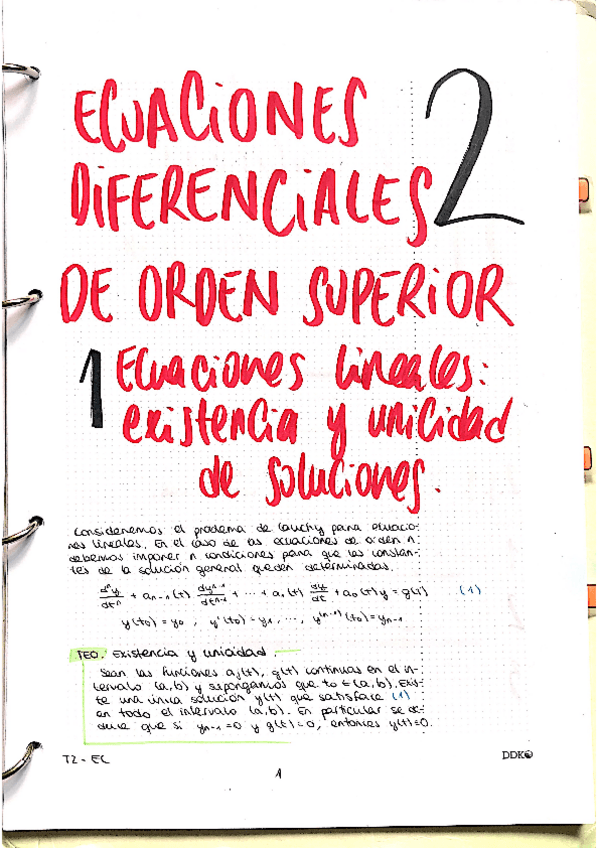 ECUACIONES 2
DIFERENCIALES
DE ORDEN SUPERIOR
1 Ecuaciones lineales:
existencia y unicidad
de soluciones.
Consideremos el problema de Cauchy para ecuacio-
nes lineales. En el caso de las ecuaciones de orden n
debemos imponer n condiciones para que las constan-
tes de la solución general queden determinadas.
dⁿy/dtⁿ + aₙ₋₁(t) dyⁿ⁻¹/dtⁿ⁻¹ + ... + a₁(t) dy/dt + a₀(t)y = g(t) (1)
y(t₀)=y₀ , y'(t₀)=y₁ , ... , y⁽ⁿ⁻¹⁾(t₀)=yₙ₋₁
TEO. Existencia y unicidad
Sean las funciones aⱼ(t), g(t) continuas en el in-
tervalo (a,b) y supongamos que t₀ ∈ (a,b). Exis-
te una única solución y(t) que satisface (1)
en todo el intervalo (a,b). En particular se de-
duce que si yₙ₋₁=0 y g(t)=0, entonces y(t)=0.
T2 - EC
DDK
1